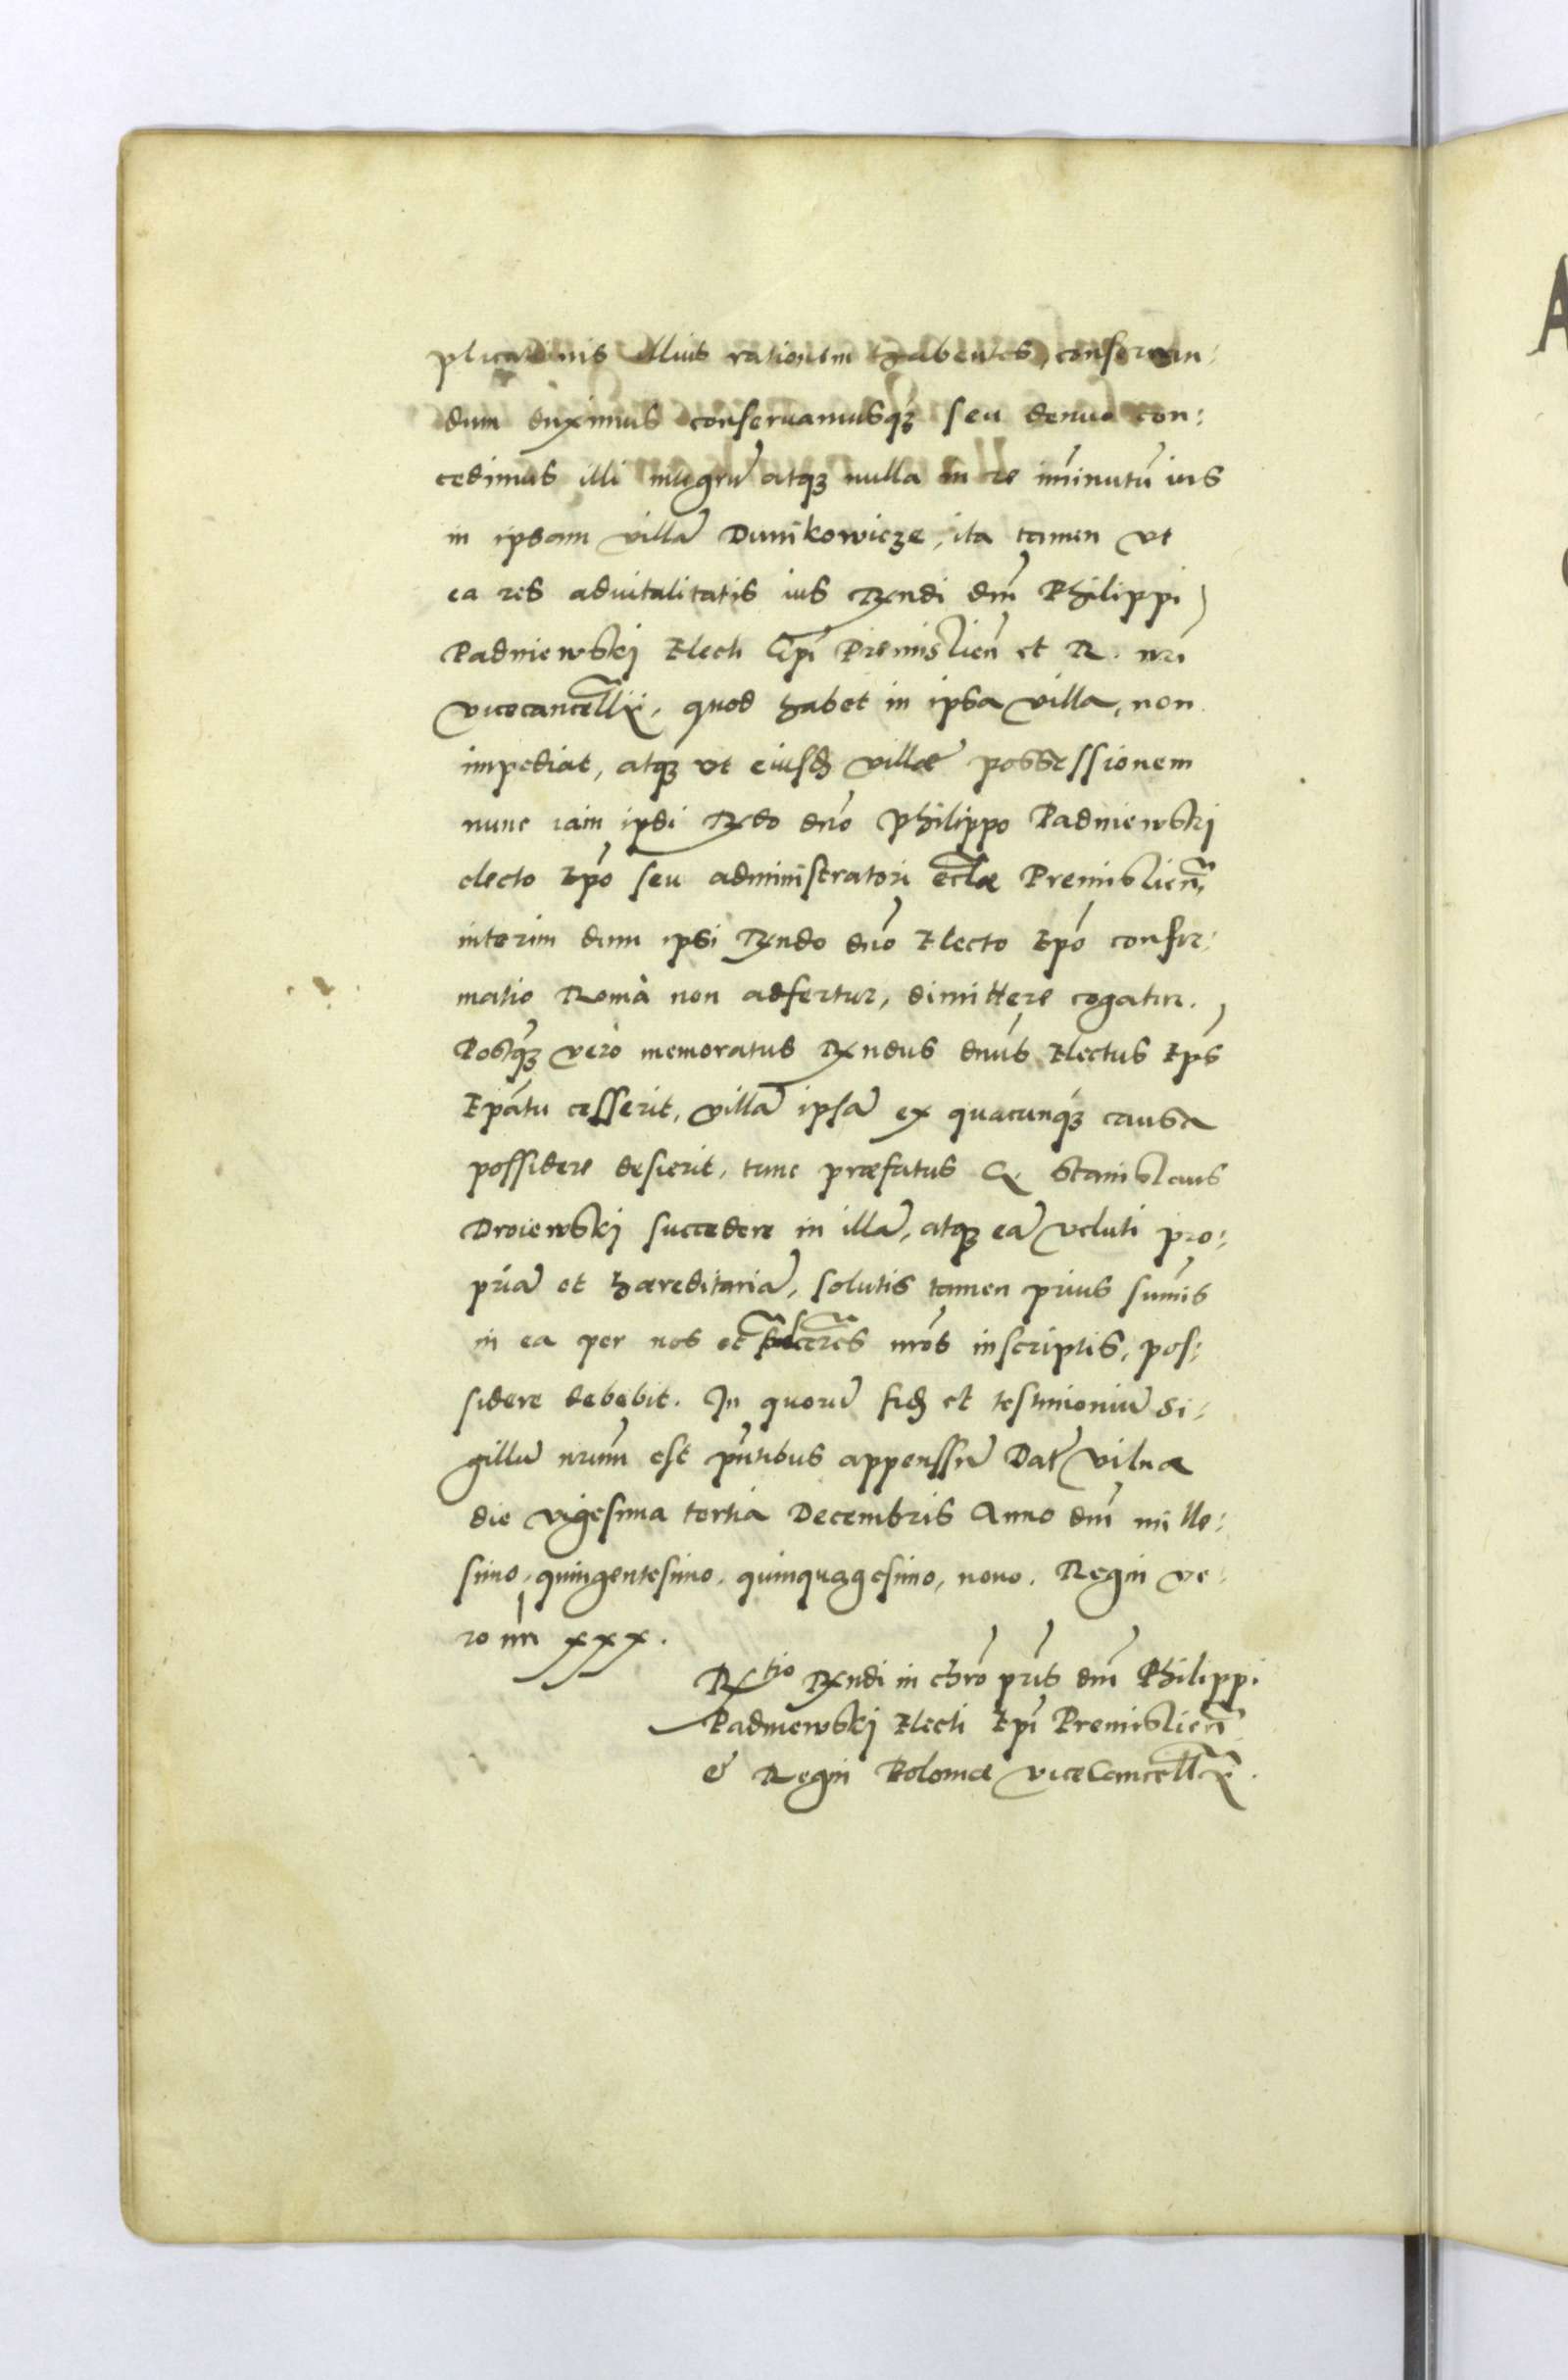 plicationis illius rationem habentes, conseruan:
dum duximus conseruamusq́ꝫ seu denuo con:
cedimus illi integrũ atqꝫ nulla in re im̃inutũ ius
in ipsam villã Dunikowicze, ita tamen vt
ea res aduitalitatis ius Rx̃ndi dñi Philippi
Padniewskj Electi Ep̃i Premislień et R. nr̃i
vicecancellĩi, quod habet in ipsa villa, non
impediat, atqꝫ vt eiusdꝫ villæ possessionem
nunc iam ipsi Rx̃do dño Philippo Padniewskj
electo Ep̃o seu administratori ecclæ Premislień,
interim dum ipsi Rx̃ndo dño Electo Ep̃o confir:
matio Romà non adfertur, dimittere cogatur.
Postq̃ꝫ verò memoratus Rx̃ndus dñus Electus Ep̃s
Ep̃atu cesserit, villã ipsã ex quacunq́ꝫ causa
possidere desierit, tunc præfatus G. Stanislaus
Droiewskj succedere in illã, atqꝫ eã veluti pro:
priã et hæreditariã, solutis tamen prius sum̃is
in ea per nos et succr̃es nr̃os inscriptis, pos:
sidere debebit. In quorũ fidꝫ et testimoniũ si:
gillũ nrũm est pñtibus appenssũ Dat̃ Vilnæ
die vigesima tertia Decembris Anno dñi mille:
simo, quingentesimo, quinquagesimo, nono. Regñi ve:
ro nr̃i xxx.
Rx̃tio Rx̃ndi in chr̃o pr̃is dñi Philippi
Padniewskj Electi Ep̃i Premislień
& Regni Poloniæ viceCancellr̃i.